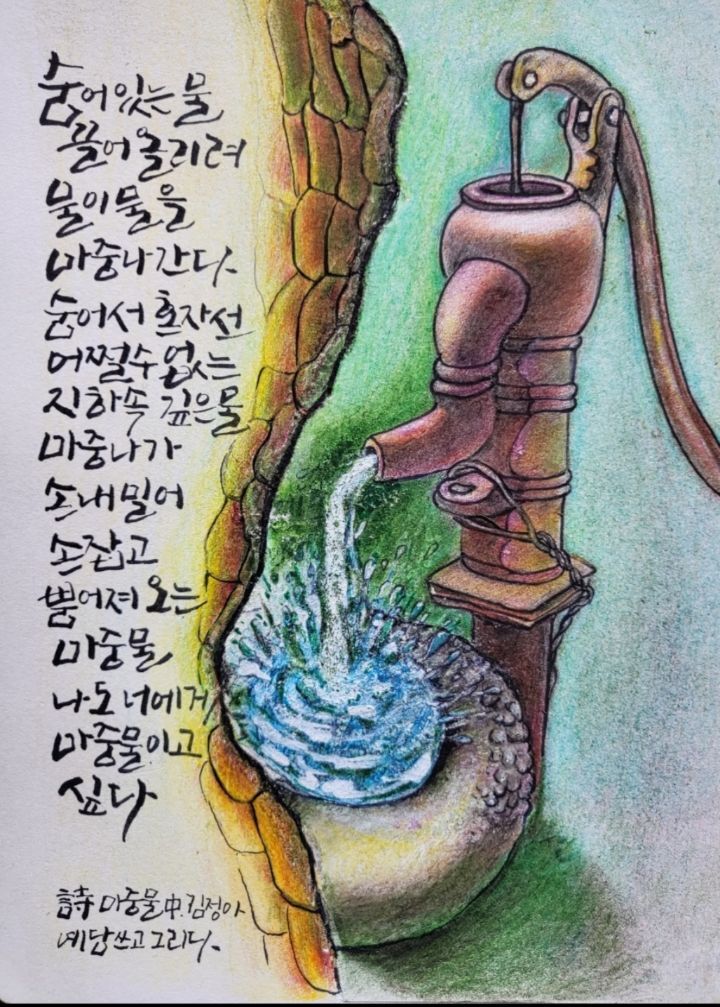 숨어있는 물
끌어올리려
물이 물을
마중나간다.
숨어서 혼자선
어쩔수 없는
지하속 깊은물
마중나가
손내밀어
손잡고
뿜어져 오는
마중물
나도 너에게
마중물이고
싶다
詩 마중물 中. 김정아
예담쓰고 그리다.